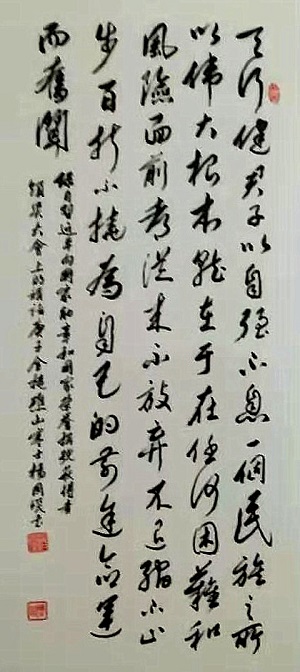 天行健君子以自强不息一個民族之所
以伟大根本就在于在任何困難和
風險面前都從来不放弃不退縮不止
步百折不撓為自己的前途命運
而奮鬥
録自習近平向國家勋章和國家荣誉稱號获得者
頒奖大會上的講話庚子金穐山寒士楊國书